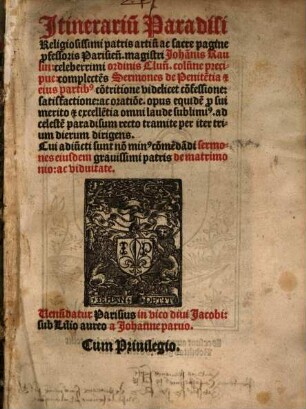 Itinerariū Paradisi
Religiosissimi patris artiū ac sacre pagine
p̄fessoris Parisieñ. magistri Johānis Rau
lin: celeberrimi ordinis Cluñ.
complectēs Sermones de Penitētia &
eius partibꝰ cōtritione videlicet cōfessione:
satisfactione: ac oratiōe. opus equidē p̱ sui
merito & excellētia omni laude sublimiꝰ. ad
celestē paradisum recto tramite per iter tri
um dierum dirigens.
Cui adiūcti sunt nō minꝰ cōmēdādi sermo
nes eiusdem grauissimi patris de matrimo
nio: ac viduitate.
I P
IEHAN PETIT
Venūdatur Parisius in vico diui Jacobi:
sub Lilio aureo a Johanne paruo.
Cum Priuilegio.